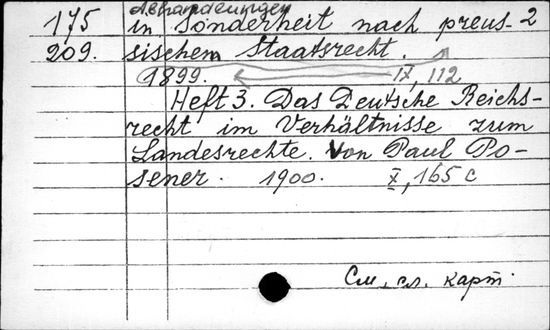 Abhandlungen
175 in Sonderheit nach preus- 2
209. sischem Staatsrecht.
1899. IX, 112
Heft 3. Das Deutsche Reichs-
recht im Verhältnisse zum
Landesrechte. Von Paul Po-
sener. 1900. X, 165 c
См. сл. карт.